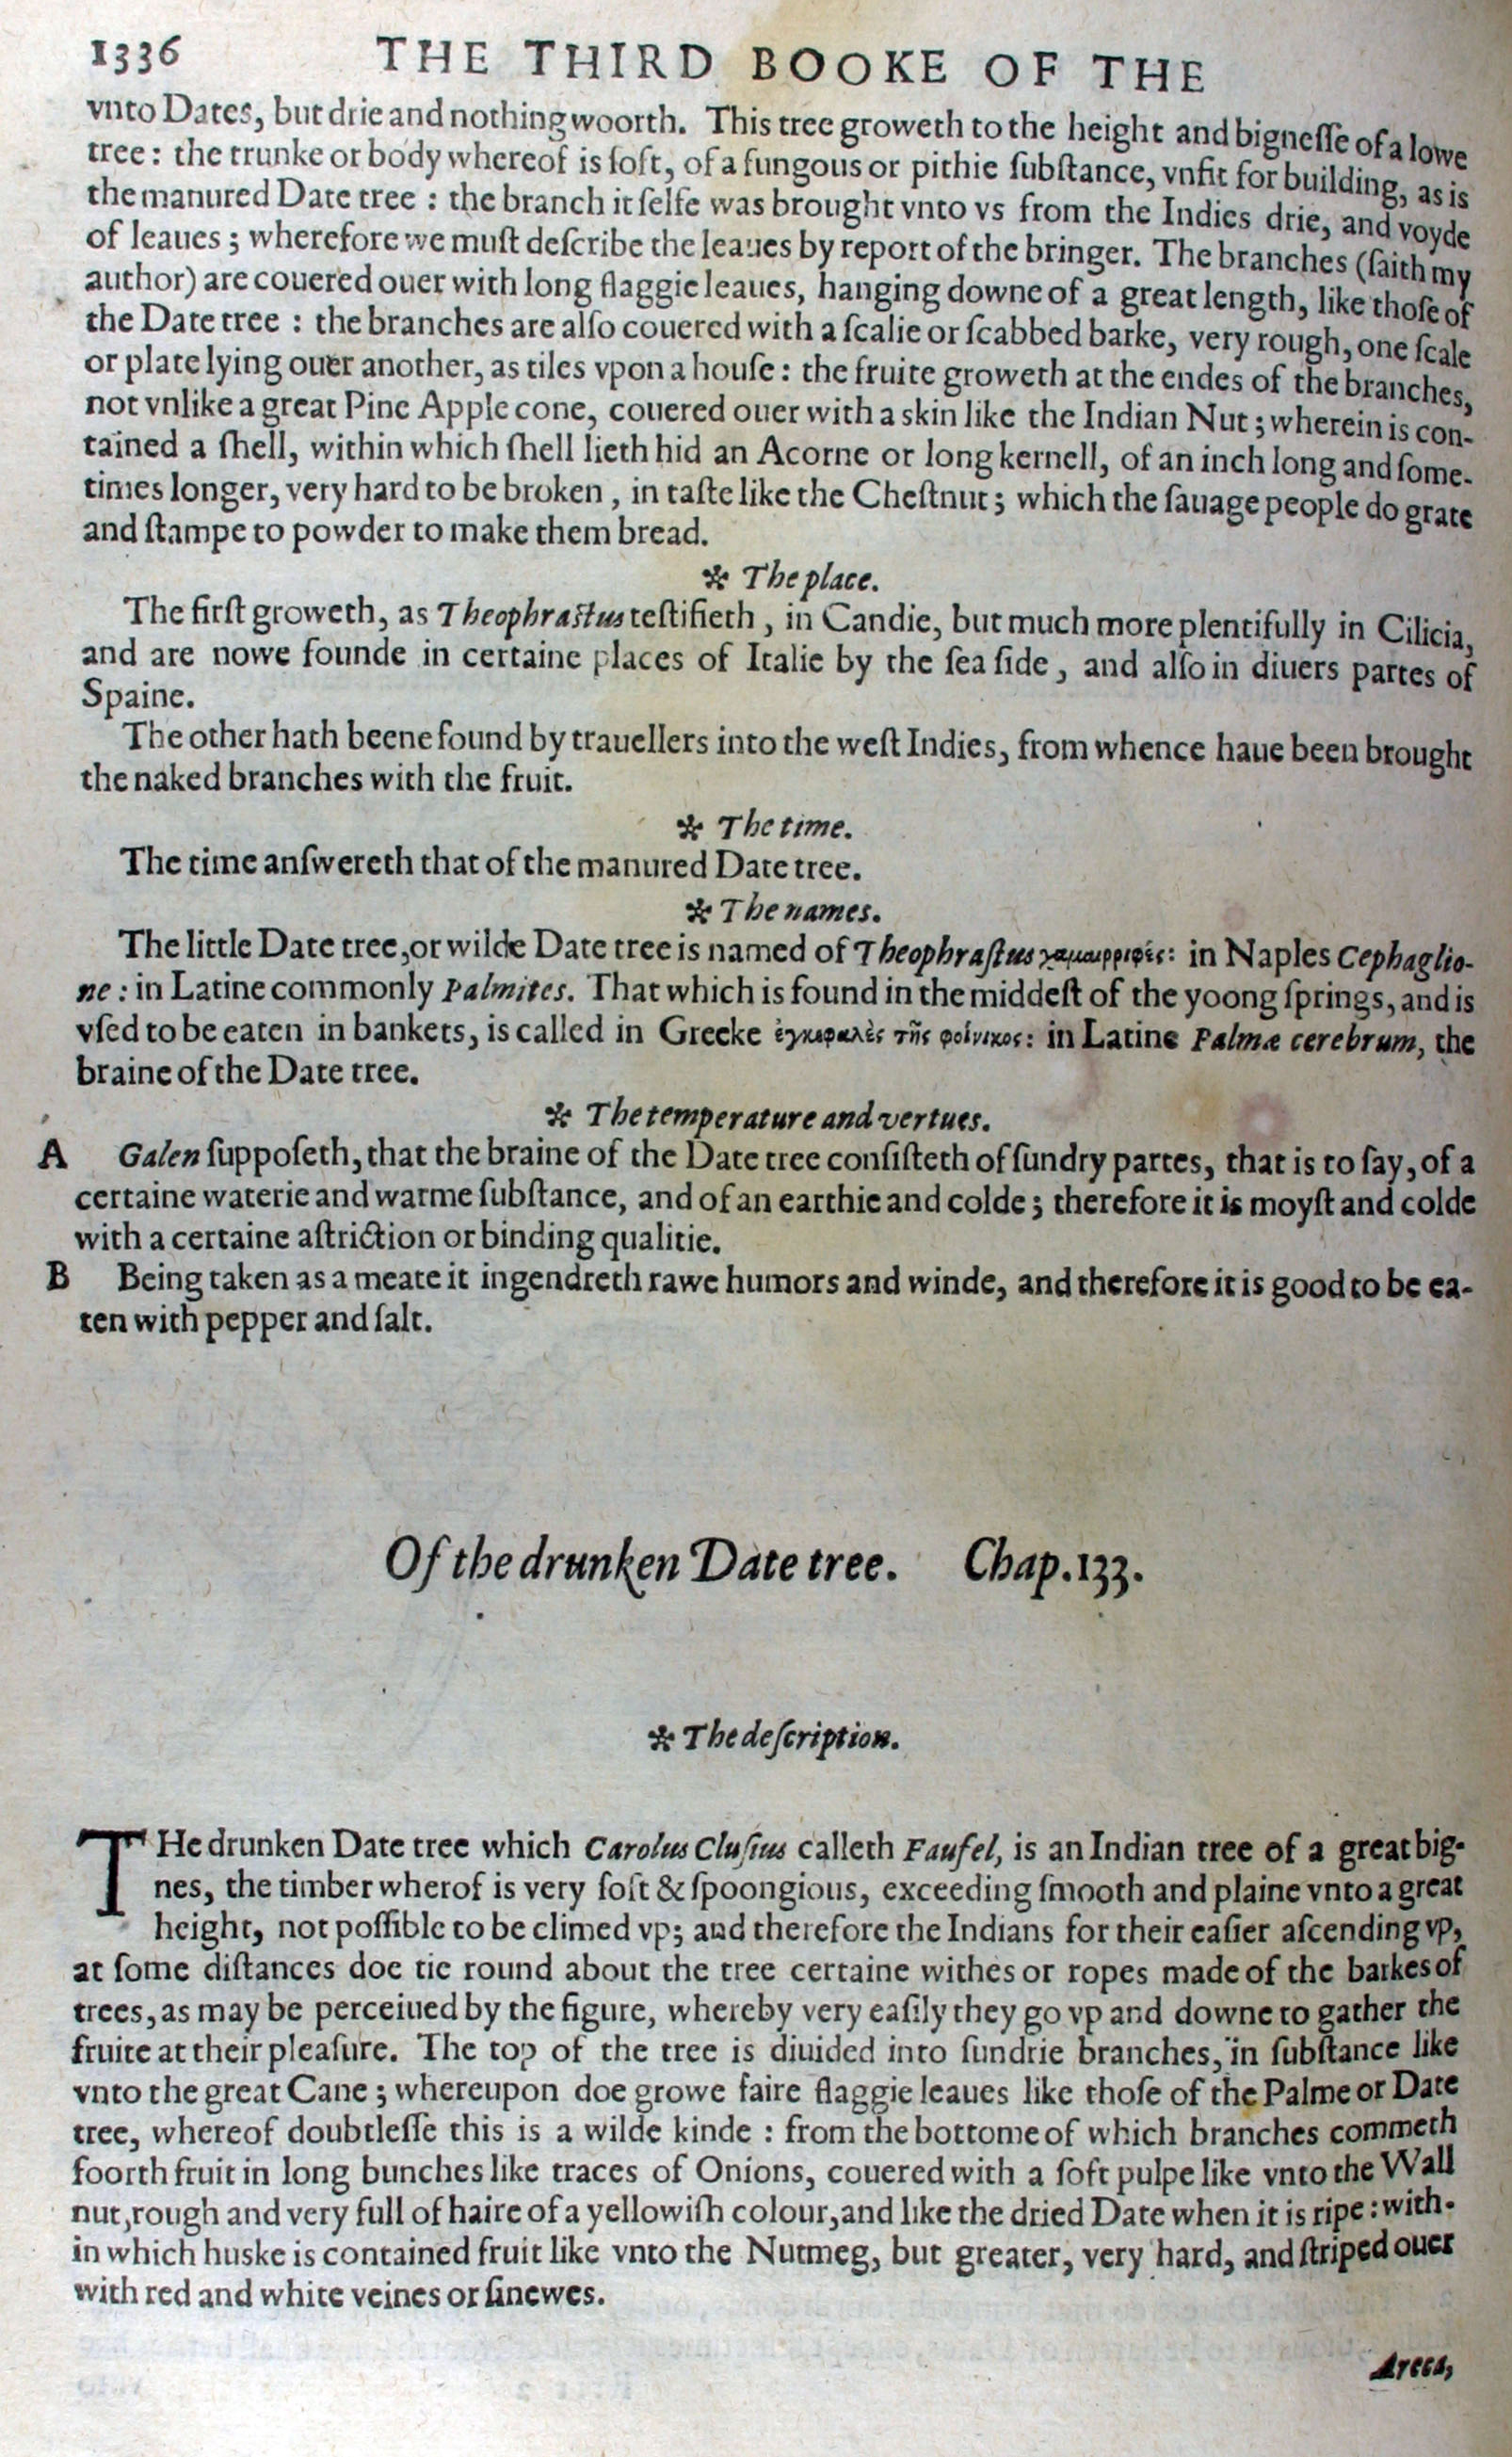 1336 THE THIRD BOOKE OF THE
vnto Dates, but drie and nothing woorth. This tree groweth to the height and bigneſſe of a lowe
tree: the trunke or body whereof is ſoft, of a fungous or pithie ſubſtance, vnfit for building, as is
the manured Date tree : the branch it ſelfe was brought vnto vs from the Indies drie, and voyde
of leaues ; wherefore we muſt deſcribe the leaues by report of the bringer. The branches (ſaith my
author) are couered ouer with long flaggie leaues, hanging downe of a great length, like thoſe of
the Date tree : the branches are alſo couered with a ſcalie or ſcabbed barke, very rough, one ſcale
or plate lying ouer another, as tiles vpon a houſe : the fruite groweth at the endes of the branches,
not vnlike a great Pine Apple cone, couered ouer with a skin like the Indian Nut ; wherein is con-
tained a ſhell, within which ſhell lieth hid an Acorne or long kernell, of an inch long and ſome-
times longer, very hard to be broken , in taſte like the Cheſtnut ; which the ſauage people do grate
and ſtampe to powder to make them bread.
✲ The place.
The firſt groweth, as Theophraſtus teſtifieth , in Candie, but much more plentifully in Cilicia,
and are nowe founde in certaine places of Italie by the ſea ſide , and alſo in diuers partes of
Spaine.
The other hath beene found by trauellers into the weſt Indies, from whence haue been brought
the naked branches with the fruit.
✲ The time.
The time anſwereth that of the manured Date tree.
✲ The names.
The little Date tree, or wilde Date tree is named of Theophraſtus χαμαιρριφές: in Naples Cephaglio-
ne : in Latine commonly Palmites. That which is found in the middeſt of the yoong ſprings, and is
vſed to be eaten in bankets, is called in Greeke ἐγκεφαλὲς τῆς φοίνικος: in Latine Palmæ cerebrum, the
braine of the Date tree.
✲ The temperature and vertues.
A Galen ſuppoſeth, that the braine of the Date tree conſiſteth of ſundry partes, that is to ſay, of a
certaine waterie and warme ſubſtance, and of an earthie and colde ; therefore it is moyſt and colde
with a certaine aſtriction or binding qualitie.
B Being taken as a meate it ingendreth rawe humors and winde, and therefore it is good to be ea-
ten with pepper and ſalt.
Of the drunken Date tree. Chap.133.
✲ The deſcription.
THe drunken Date tree which Carolus Cluſius calleth Faufel, is an Indian tree of a great big-
nes, the timber wherof is very ſoft & ſpoongious, exceeding ſmooth and plaine vnto a great
height, not poſſible to be climed vp; and therefore the Indians for their eaſier aſcending vp,
at ſome diſtances doe tie round about the tree certaine withes or ropes made of the barkes of
trees, as may be perceiued by the figure, whereby very eaſily they go vp and downe to gather the
fruite at their pleaſure. The top of the tree is diuided into ſundrie branches, in ſubſtance like
vnto the great Cane ; whereupon doe growe faire flaggie leaues like thoſe of the Palme or Date
tree, whereof doubtleſſe this is a wilde kinde : from the bottome of which branches commeth
foorth fruit in long bunches like traces of Onions, couered with a ſoft pulpe like vnto the Wall
nut, rough and very full of haire of a yellowiſh colour, and like the dried Date when it is ripe : with-
in which huske is contained fruit like vnto the Nutmeg, but greater, very hard, and ſtriped ouer
with red and white veines or ſinewes.
Areca,